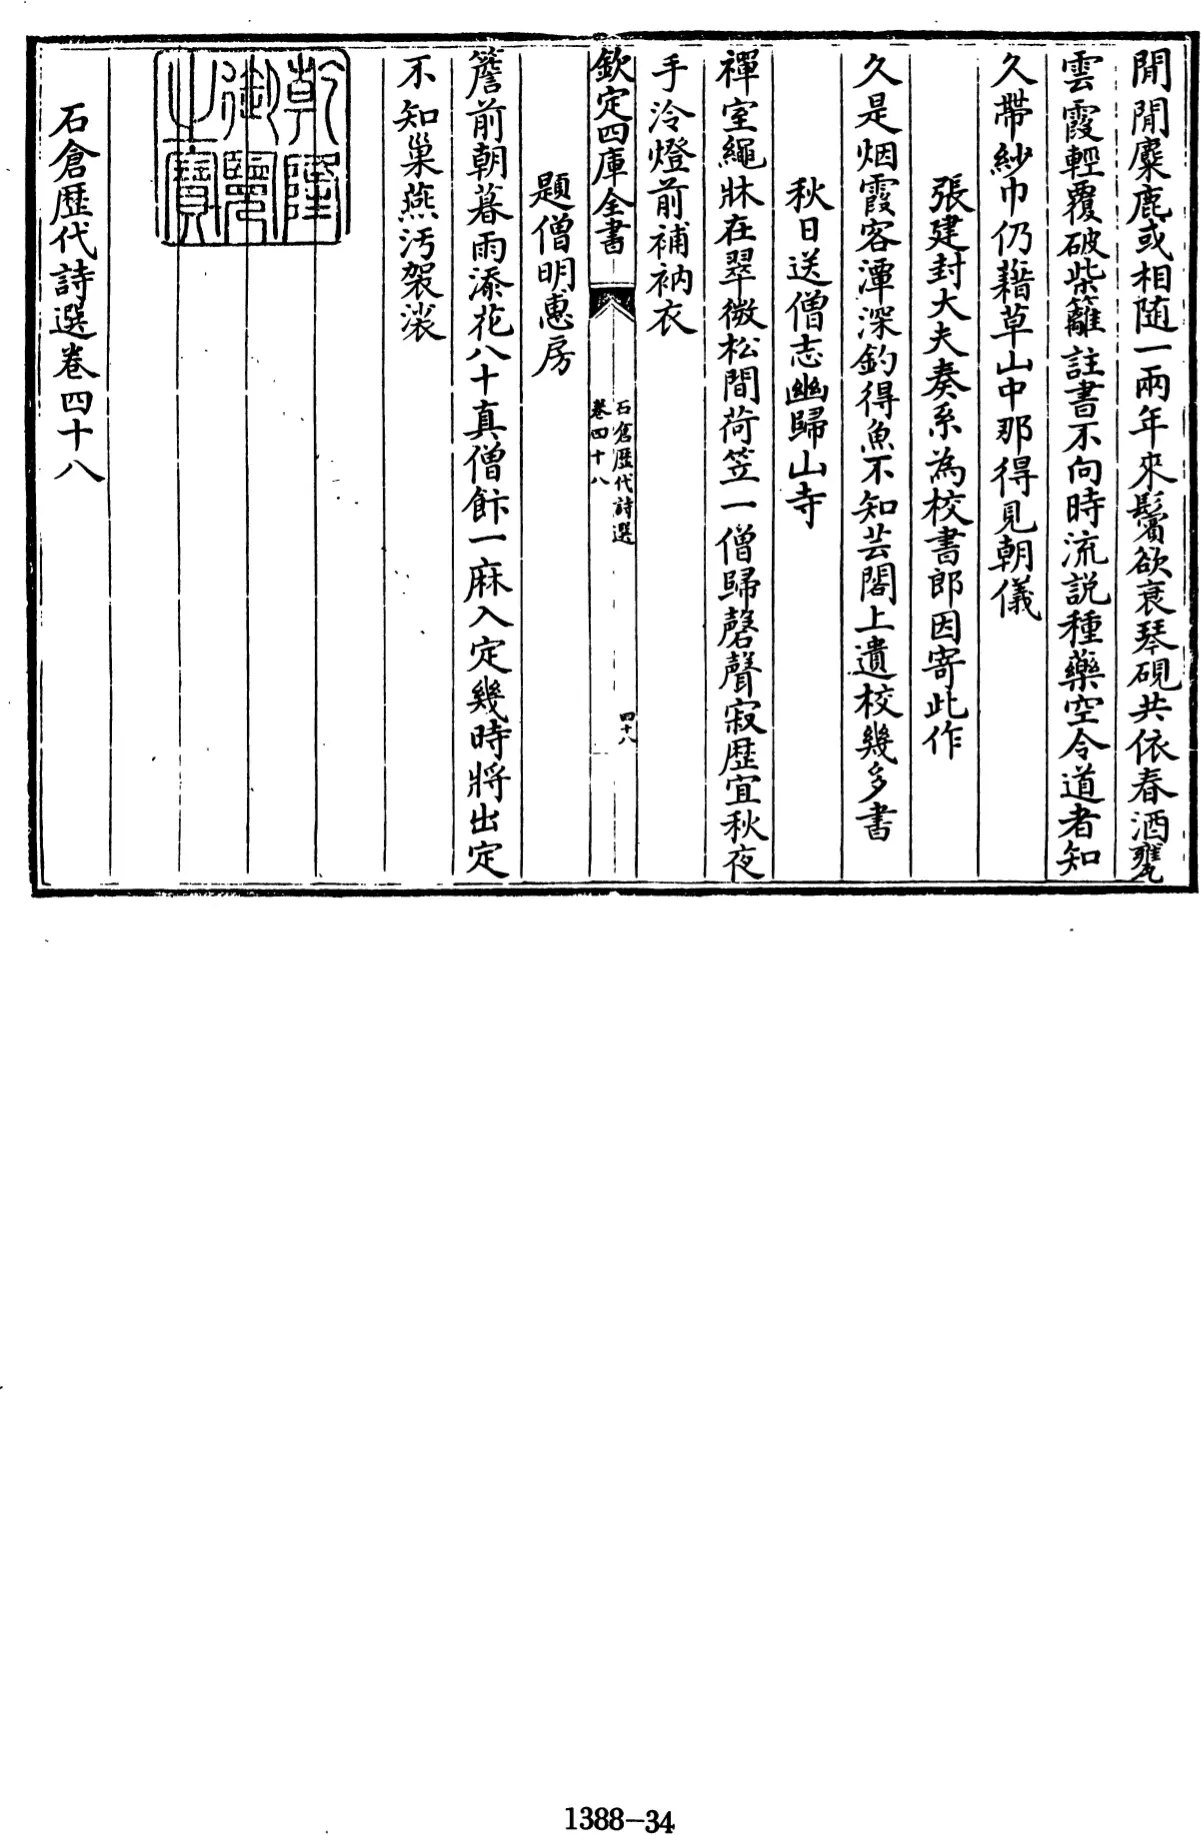 閒閒麋鹿或相隨一兩年來鬢欲衰琴硯共依春酒甕
雲霞輕覆破柴籬註書不向時流説種藥空令道者知
久帶紗巾仍藉草山中那得見朝儀
張建封大夫奏系為校書郎因寄此作
久是烟霞客潭深釣得魚不知芸閣上遺校幾多書
秋日送僧志幽歸山寺
禪室繩牀在翠微松間荷笠一僧歸磬聲寂歴宜秋夜
手冷燈前補衲衣
欽定四庫全書
石倉歴代詩選
卷四十八
四十八
題僧明惠房
簷前朝暮雨添花八十真僧飰一麻入定幾時將出定
不知巢燕汚袈裟
乾隆
御覽
之寶
石倉歴代詩選卷四十八
1388-34